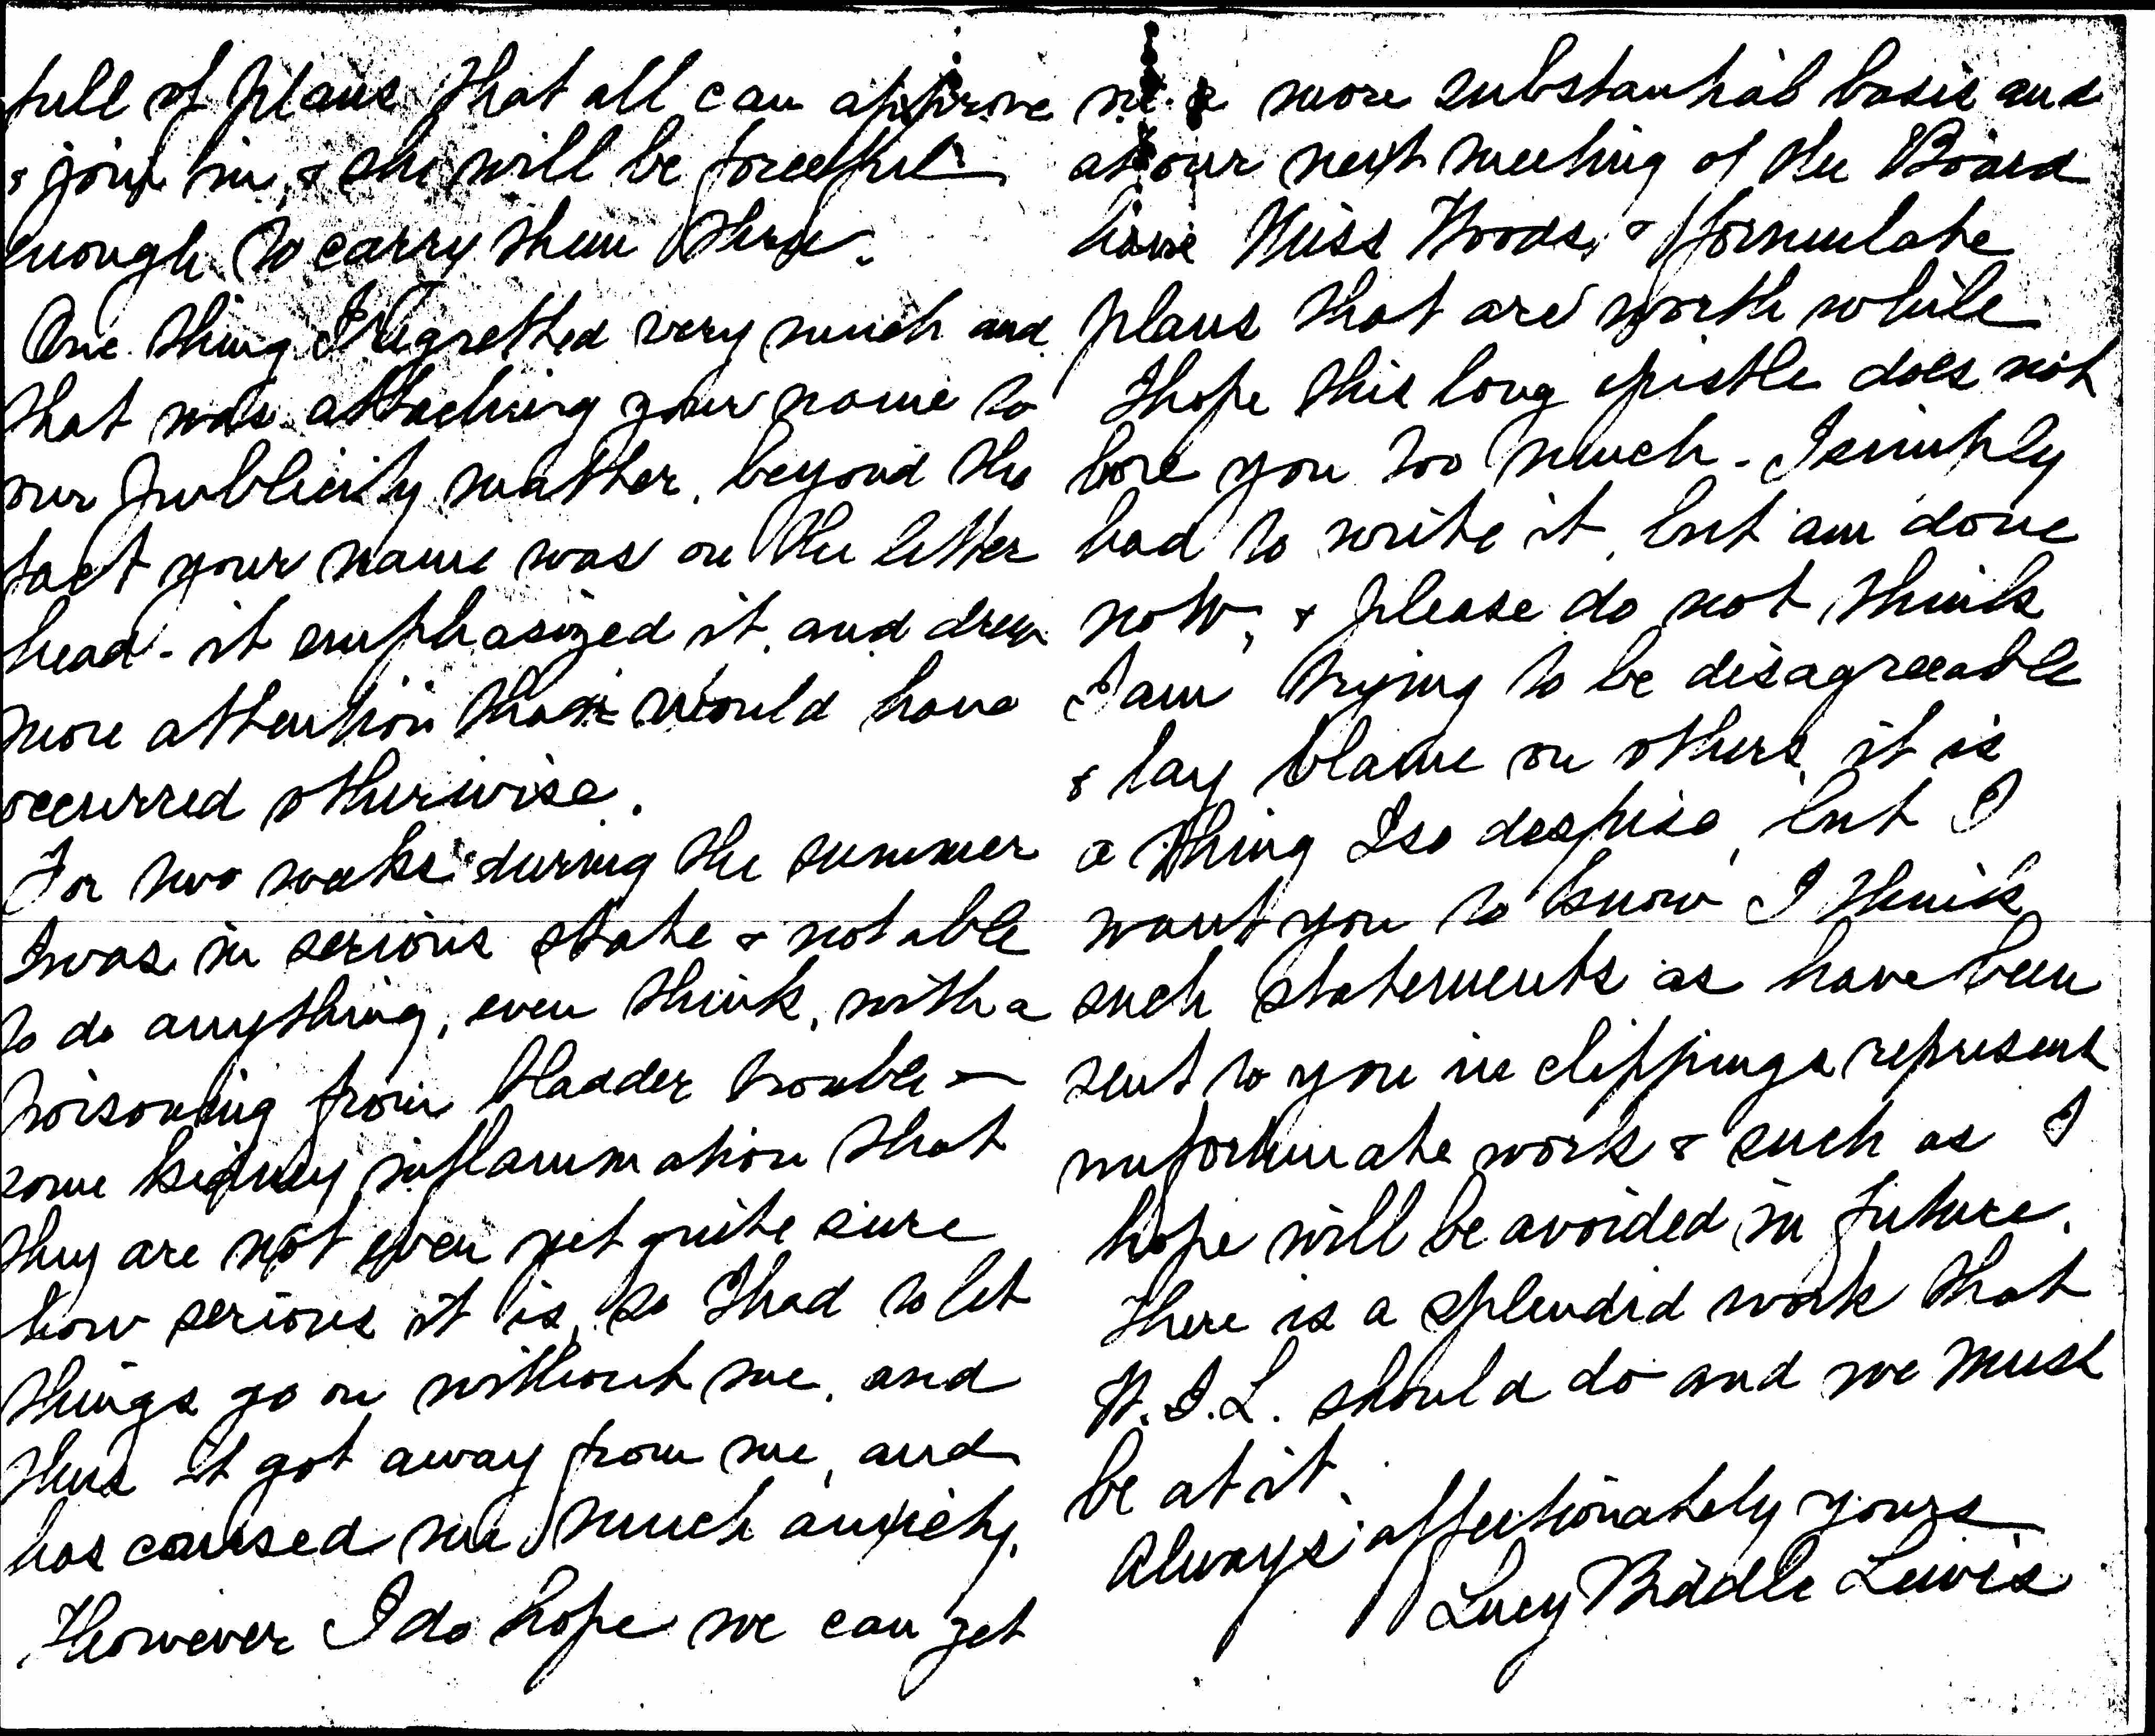 full of plans that all can approve
& join in, & she will be forceful
enough to carry them thru.
One thing I regretted very much and
that was attaching your name to
our publicity matter, beyond the
fact your name was on the letter
head - it emphasized it, and drew
more attention than would have
occurred otherwise.
For two weeks during the summer
I was in serious state & not able
to do anything, even think, with a
poisoning from bladder trouble -
some kidney inflammation that
they are not even yet quite sure
how serious it is, so I had to let
things go on without me, and
thus it got away from me, and
has caused me much anxiety.
However I do hope we can get
on a more substantial basis and
at our next meeting of the Board
have Miss Woods, & formulate
plans that are worth while
I hope this long epistle does not
bore you too much - I simply
had to write it, but am done
now, & please do not think
I am trying to be disagreeable
& lay blame on others, it is
a thing I so despise, but I
want you to know I think
such statements as have been
sent to you in clippings represent
unfortunate work & such as I
hope will be avoided in future.
There is a splendid work that
W.I.L. should do and we must
be at it.
Always affectionately yours
Lucy Biddle Lewis